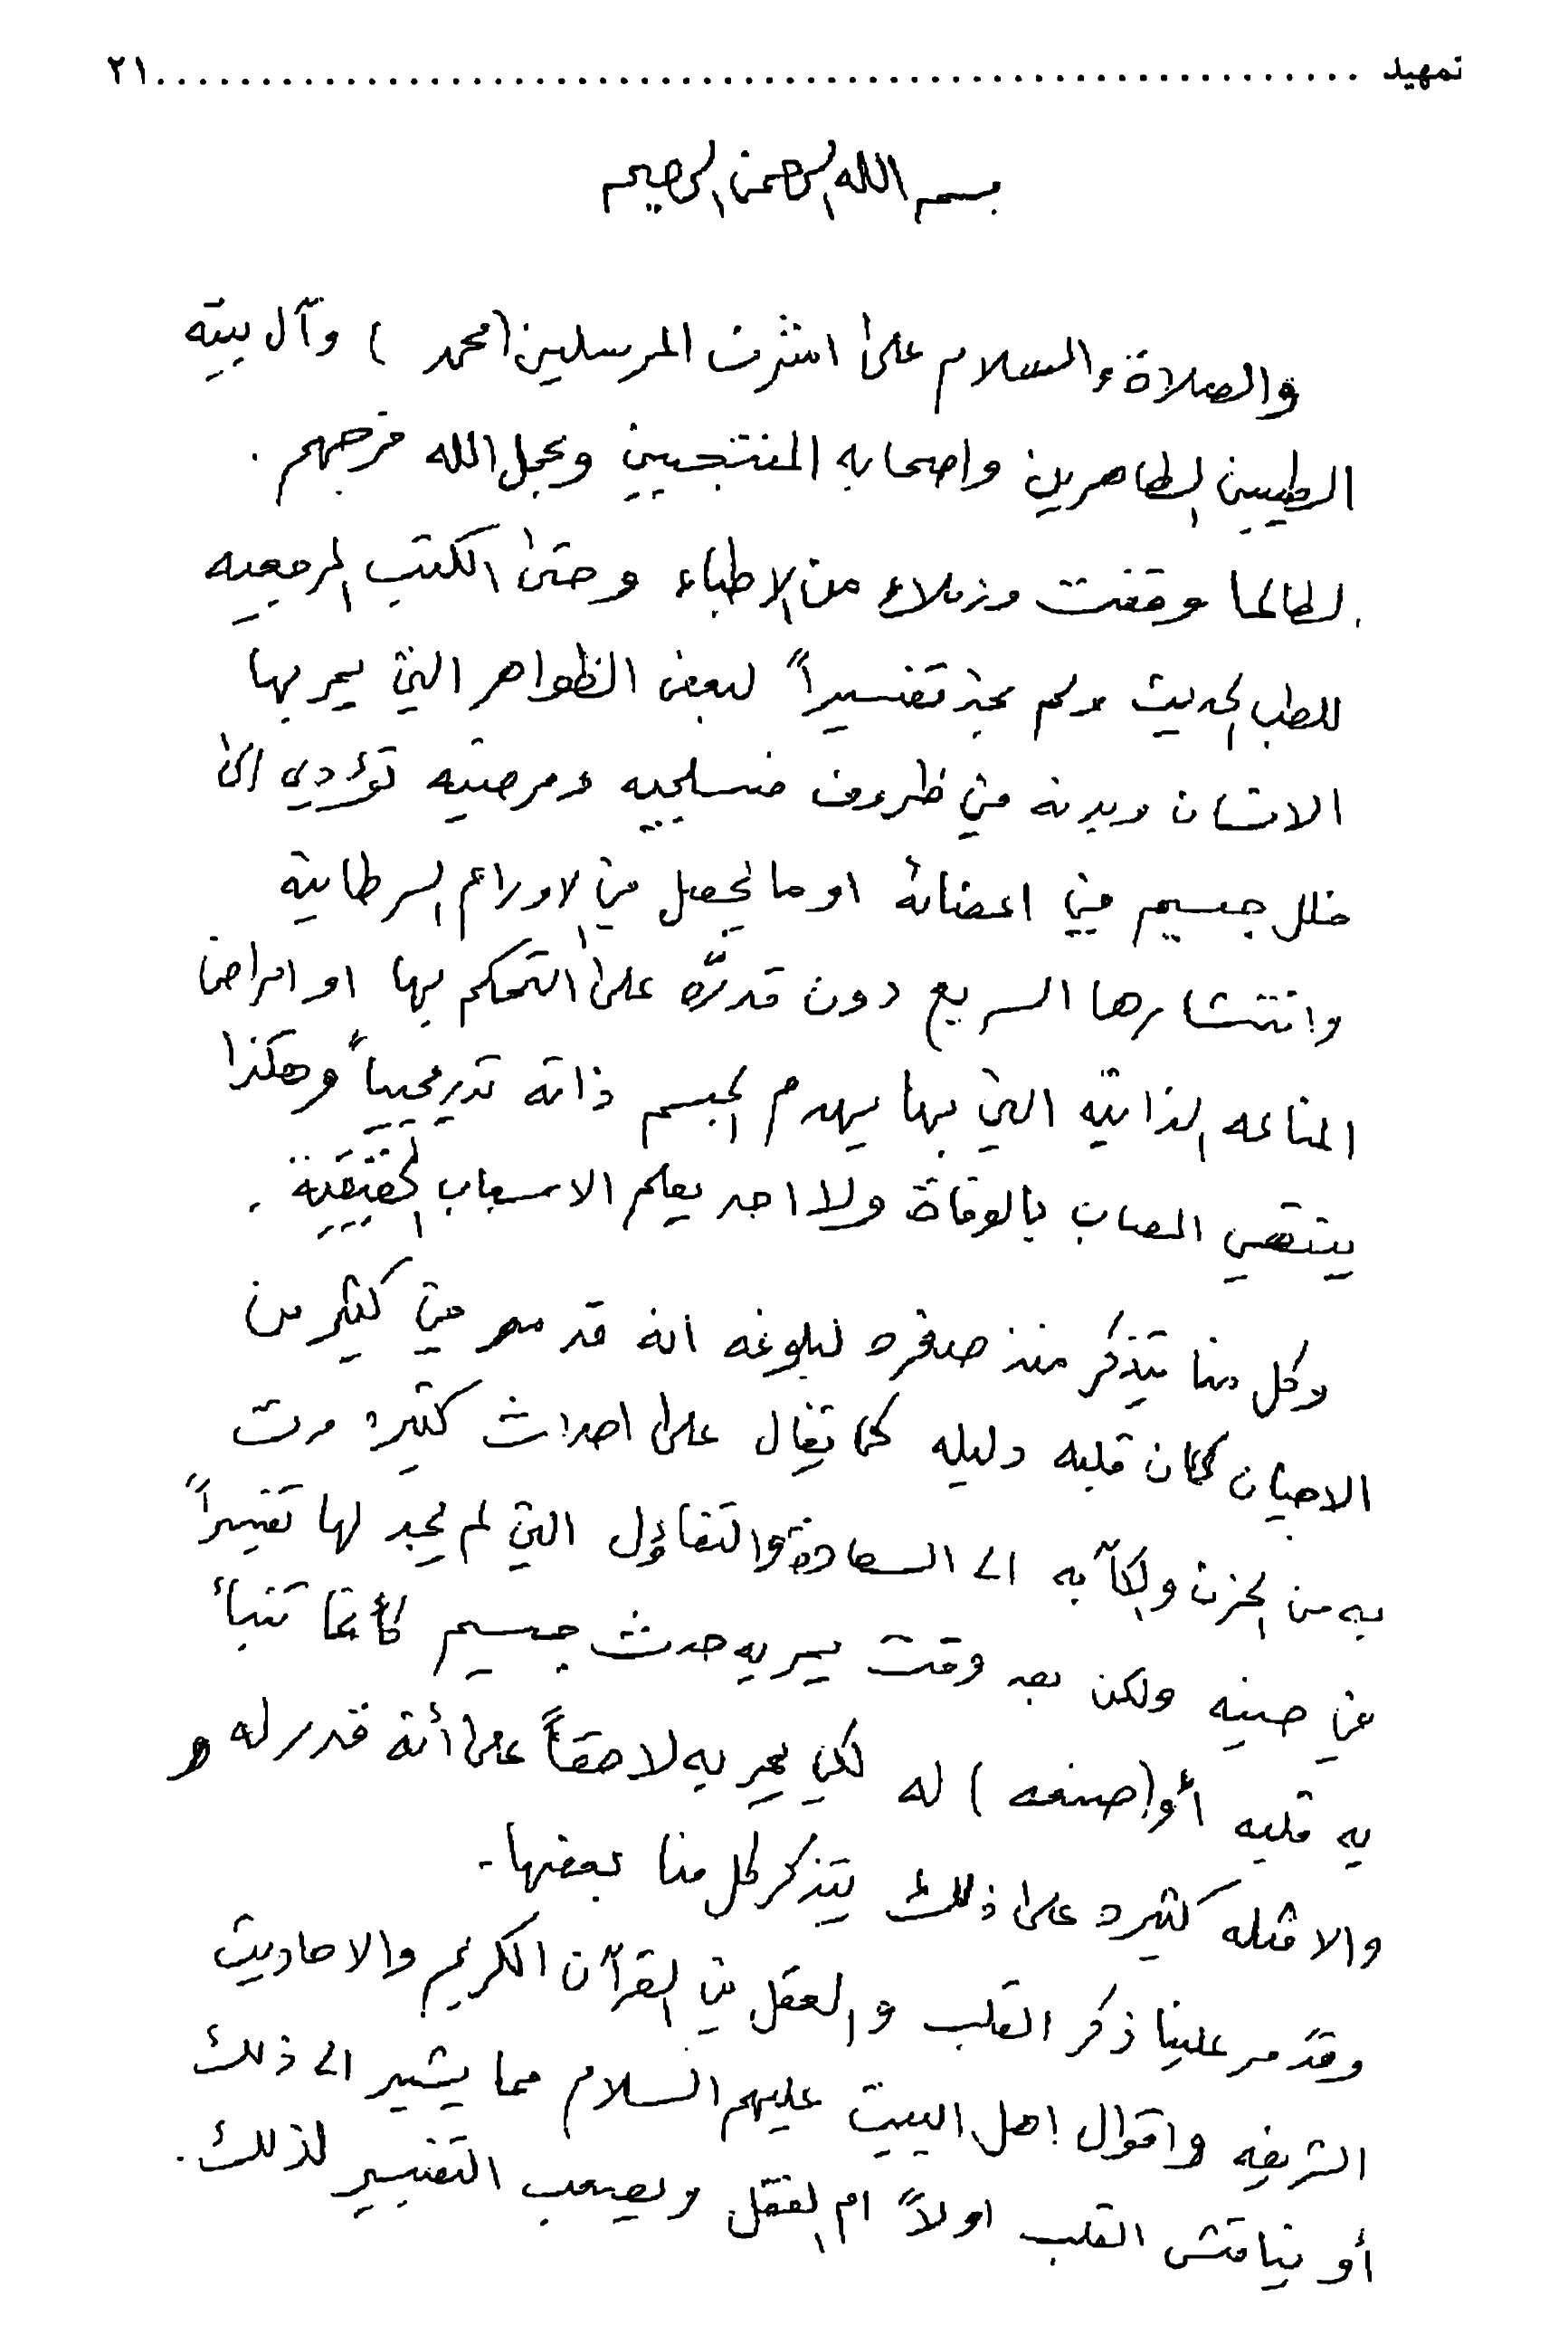 تمهيد ................................................ ٢١
بسم الله الرحمن الرحيم
والصلاة والسلام على اشرف المرسلين (محمد ) وآل بيته
الطيبين الطاهرين واصحابه المنتجبين وعجل الله فرجهم .
لطالما وقفت وزملاء من الاطباء وحتى الكتب المرجعيه
للطب الحديث ولم نجد تفسيراً لبعض الظواهر التي يمر بها
الانسان وبدنه في ظروف فسلجيه ومرضيه تؤدي الى
خلل جسيم في اعضائه او ما يحصل في الاورام السرطانية
وانتشارها السريع دون قدرة على التحكم بها او امراض
المناعه الذاتيه التي بها يهدم الجسم ذاته تدريجياً وهكذا
ينتهي المصاب بالوفاة ولا احد يعلم الاسباب الحقيقية .
وكل منا يتذكر منذ صغره لبلوغه انه قد مر في كثير من
الاحيان كان قلبه دليله كما يقال على احداث كثيره مرت
به من الحزن والكآبه الى السعادة والتفاؤل التي لم يجد لها تفسيراً
في حينه ولكن بعد وقت يمر به حدث جسيم كأنما تنبأ
به قلبه أو (صنعه ) له لكي يمر به لاحقاً على أنه قدر له و
والامثله كثيره على ذلك يتذكر كل منا بعضها -
وقد مر علينا ذكر القلب والعقل في القرآن الكريم والاحاديث
الشريفه واقوال اهل البيت عليهم السلام مما يشير الى ذلك
أو نناقش القلب اولاً ام العقل ويصعب التفسير لذلك .